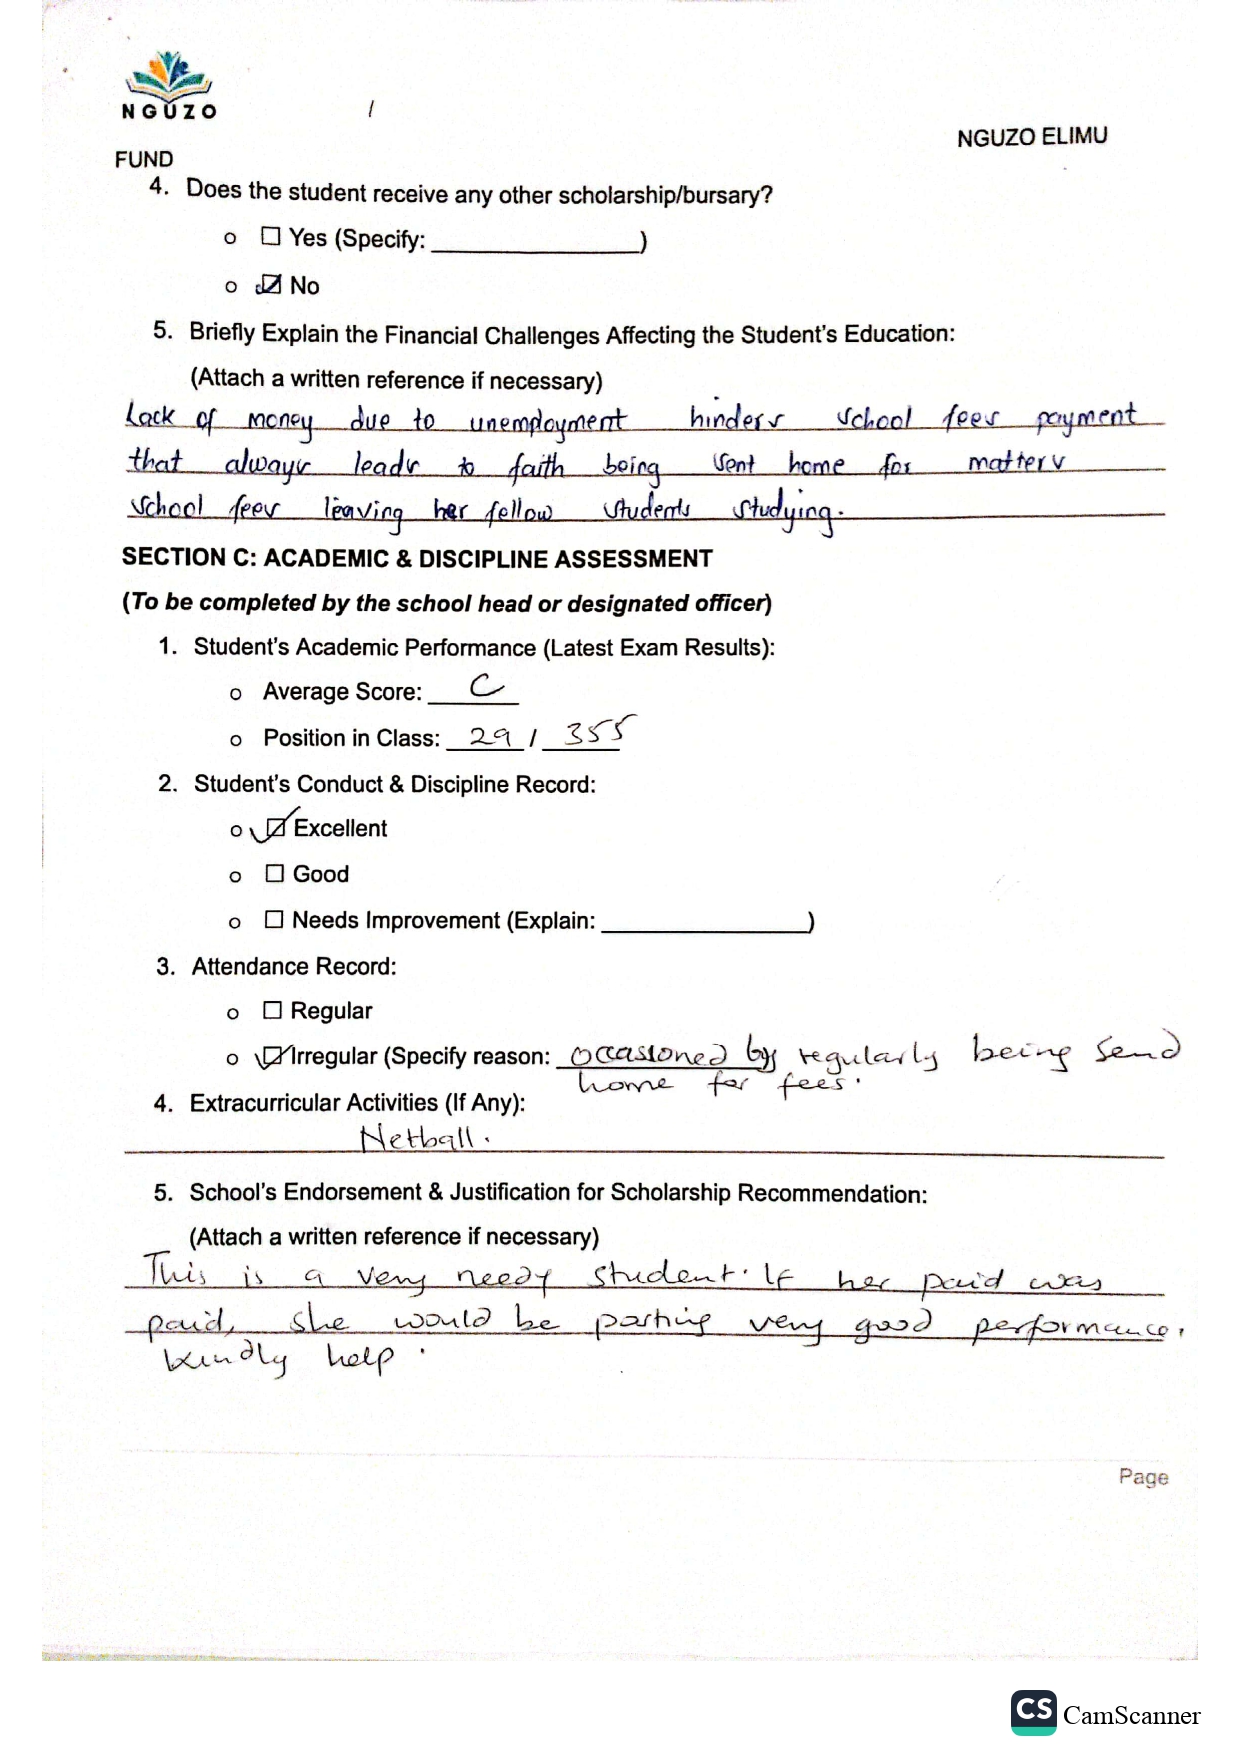 NGUZO
NGUZO ELIMU
FUND
4. Does the student receive any other scholarship/bursary?
o ☐ Yes (Specify: _______________)
o ☑ No
5. Briefly Explain the Financial Challenges Affecting the Student's Education:
(Attach a written reference if necessary)
Lack of money due to unemployment hinders school fees payment
that always leads to faith being sent home for matters
school fees leaving her fellow students studying.
SECTION C: ACADEMIC & DISCIPLINE ASSESSMENT
(To be completed by the school head or designated officer)
1. Student's Academic Performance (Latest Exam Results):
o Average Score: C
o Position in Class: 29 / 355
2. Student's Conduct & Discipline Record:
o ☑ Excellent
o ☐ Good
o ☐ Needs Improvement (Explain: _______________)
3. Attendance Record:
o ☐ Regular
o ☑ Irregular (Specify reason: occasioned by regularly being send
home for fees.
4. Extracurricular Activities (If Any):
Netball.
5. School's Endorsement & Justification for Scholarship Recommendation:
(Attach a written reference if necessary)
This is a very needy student. If her paid was
paid, she would be posting very good performance.
kindly help.
Page
CS CamScanner